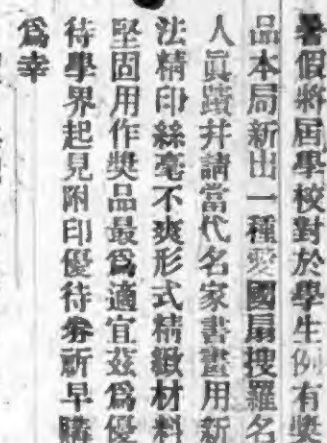 暑假將屆學校對於學生例有獎
品本局新出一種愛國扇搜羅名
人眞蹟并請當代名家書畫用新
法精印絲毫不爽形式精緻材料
堅固用作獎品最爲適宜茲爲優
待學界起見附印優待券祈早購
爲幸